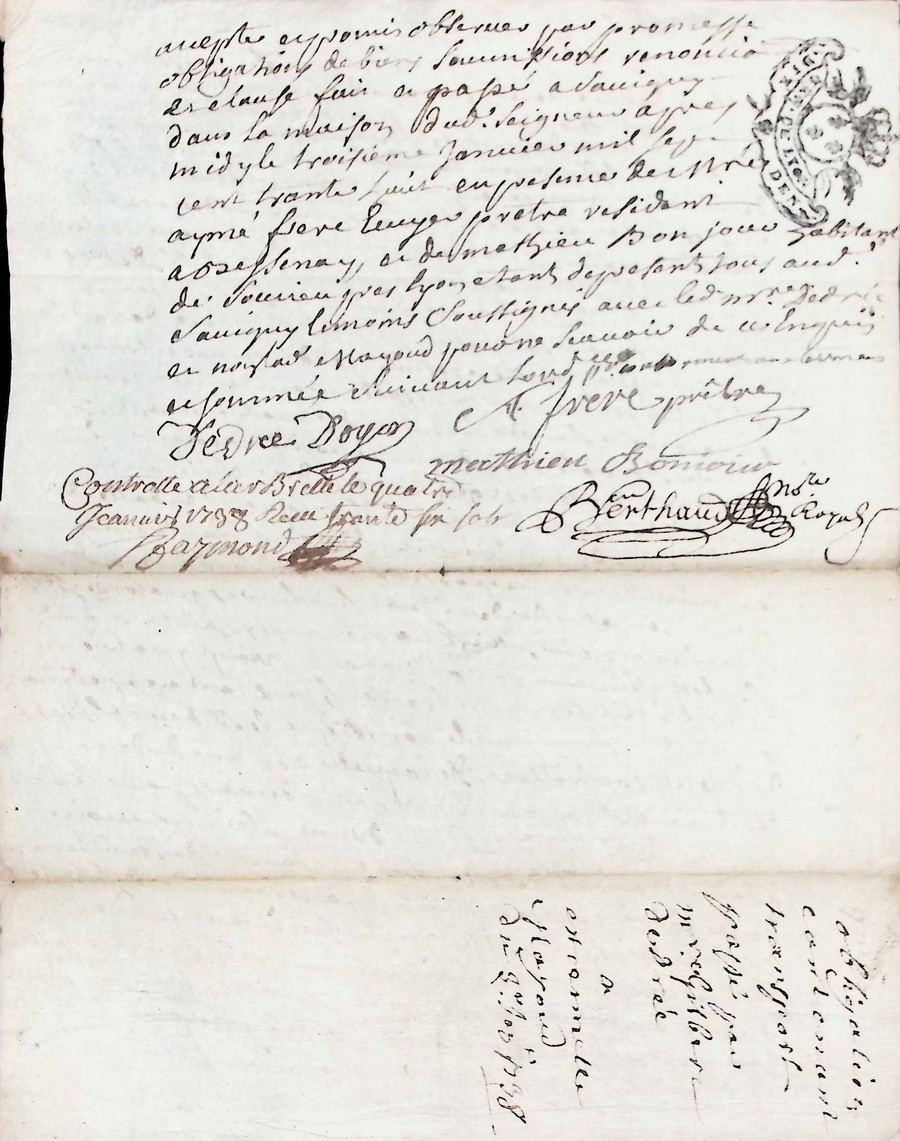 accepte et promis observer par promesse
obligations de biens soumissions renonciā
et clause fait et passé a Savigny
dans la maison dudt. Seigneur apres
midy le troisieme Janvier mil sept
cent trante huit en presence de Mre
aymé frere pretre resident
a et de mathieu Bonjour habitant
de Sourcieu pres lyon etant de present tous aud.
Savigny temoins Soussignés avec led
et non lad Mayoud pour ne scavoir de ce Enquis
et sommée suivant
A. frere prêtre
Dedree Doyen
mathieu Bonjour
Controllé a larBrelle le quatre
Jeanvier 1738 Receu trante six sols
Raymond
Berthaud nore Royal
DENI
obligation
contenant
transport
passé par
mre gilbert
dedrée
a
estiennette
Mayoud
du 3e Jer 1738